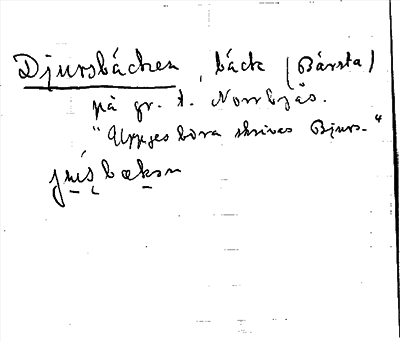 Djursbäcken, bäck (Bårsta)
på gr. t. Norrbyås.
"Uppges böra skrivas Bjurs-"
jụśbækan